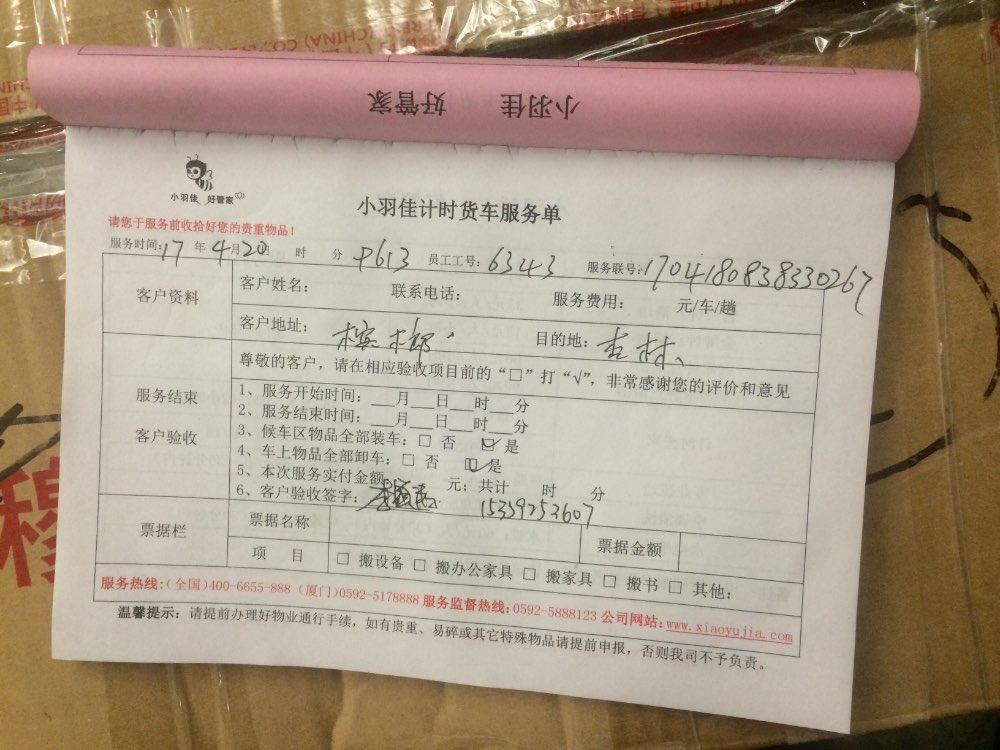 小羽佳 好管家
小羽佳 好管家
小羽佳计时货车服务单
请您于服务前收拾好您的贵重物品！
服务时间:17年4月20日 时 分 P613 员工工号:6343 服务联号:1704180838330267
客户资料
客户姓名: 联系电话: 服务费用: 元/车/趟
客户地址: 槟榔 目的地: 杏林
服务结束
客户验收
尊敬的客户，请在相应验收项目前的“□”打“√”，非常感谢您的评价和意见
1、服务开始时间：___月___日___时___分
2、服务结束时间：___月___日___时___分
3、候车区物品全部装车：□ 否 ☑ 是
4、车上物品全部卸车：□ 否 ☑ 是
5、本次服务实付金额 元；共计 时 分
6、客户验收签字： 15359253607
票据栏
票据名称 票据金额
项 目 □ 搬设备 □ 搬办公家具 □ 搬家具 □ 搬书 □ 其他:
服务热线:(全国)400-6655-888 (厦门)0592-5178888 服务监督热线:0592-5888123 公司网站:www.xiaoyujia.com
温馨提示：请提前办理好物业通行手续，如有贵重、易碎或其它特殊物品请提前申报，否则我司不予负责。